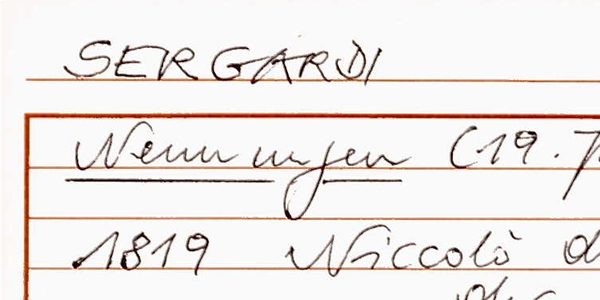 SERGARDI
Nennungen (19.
1819 Niccolò